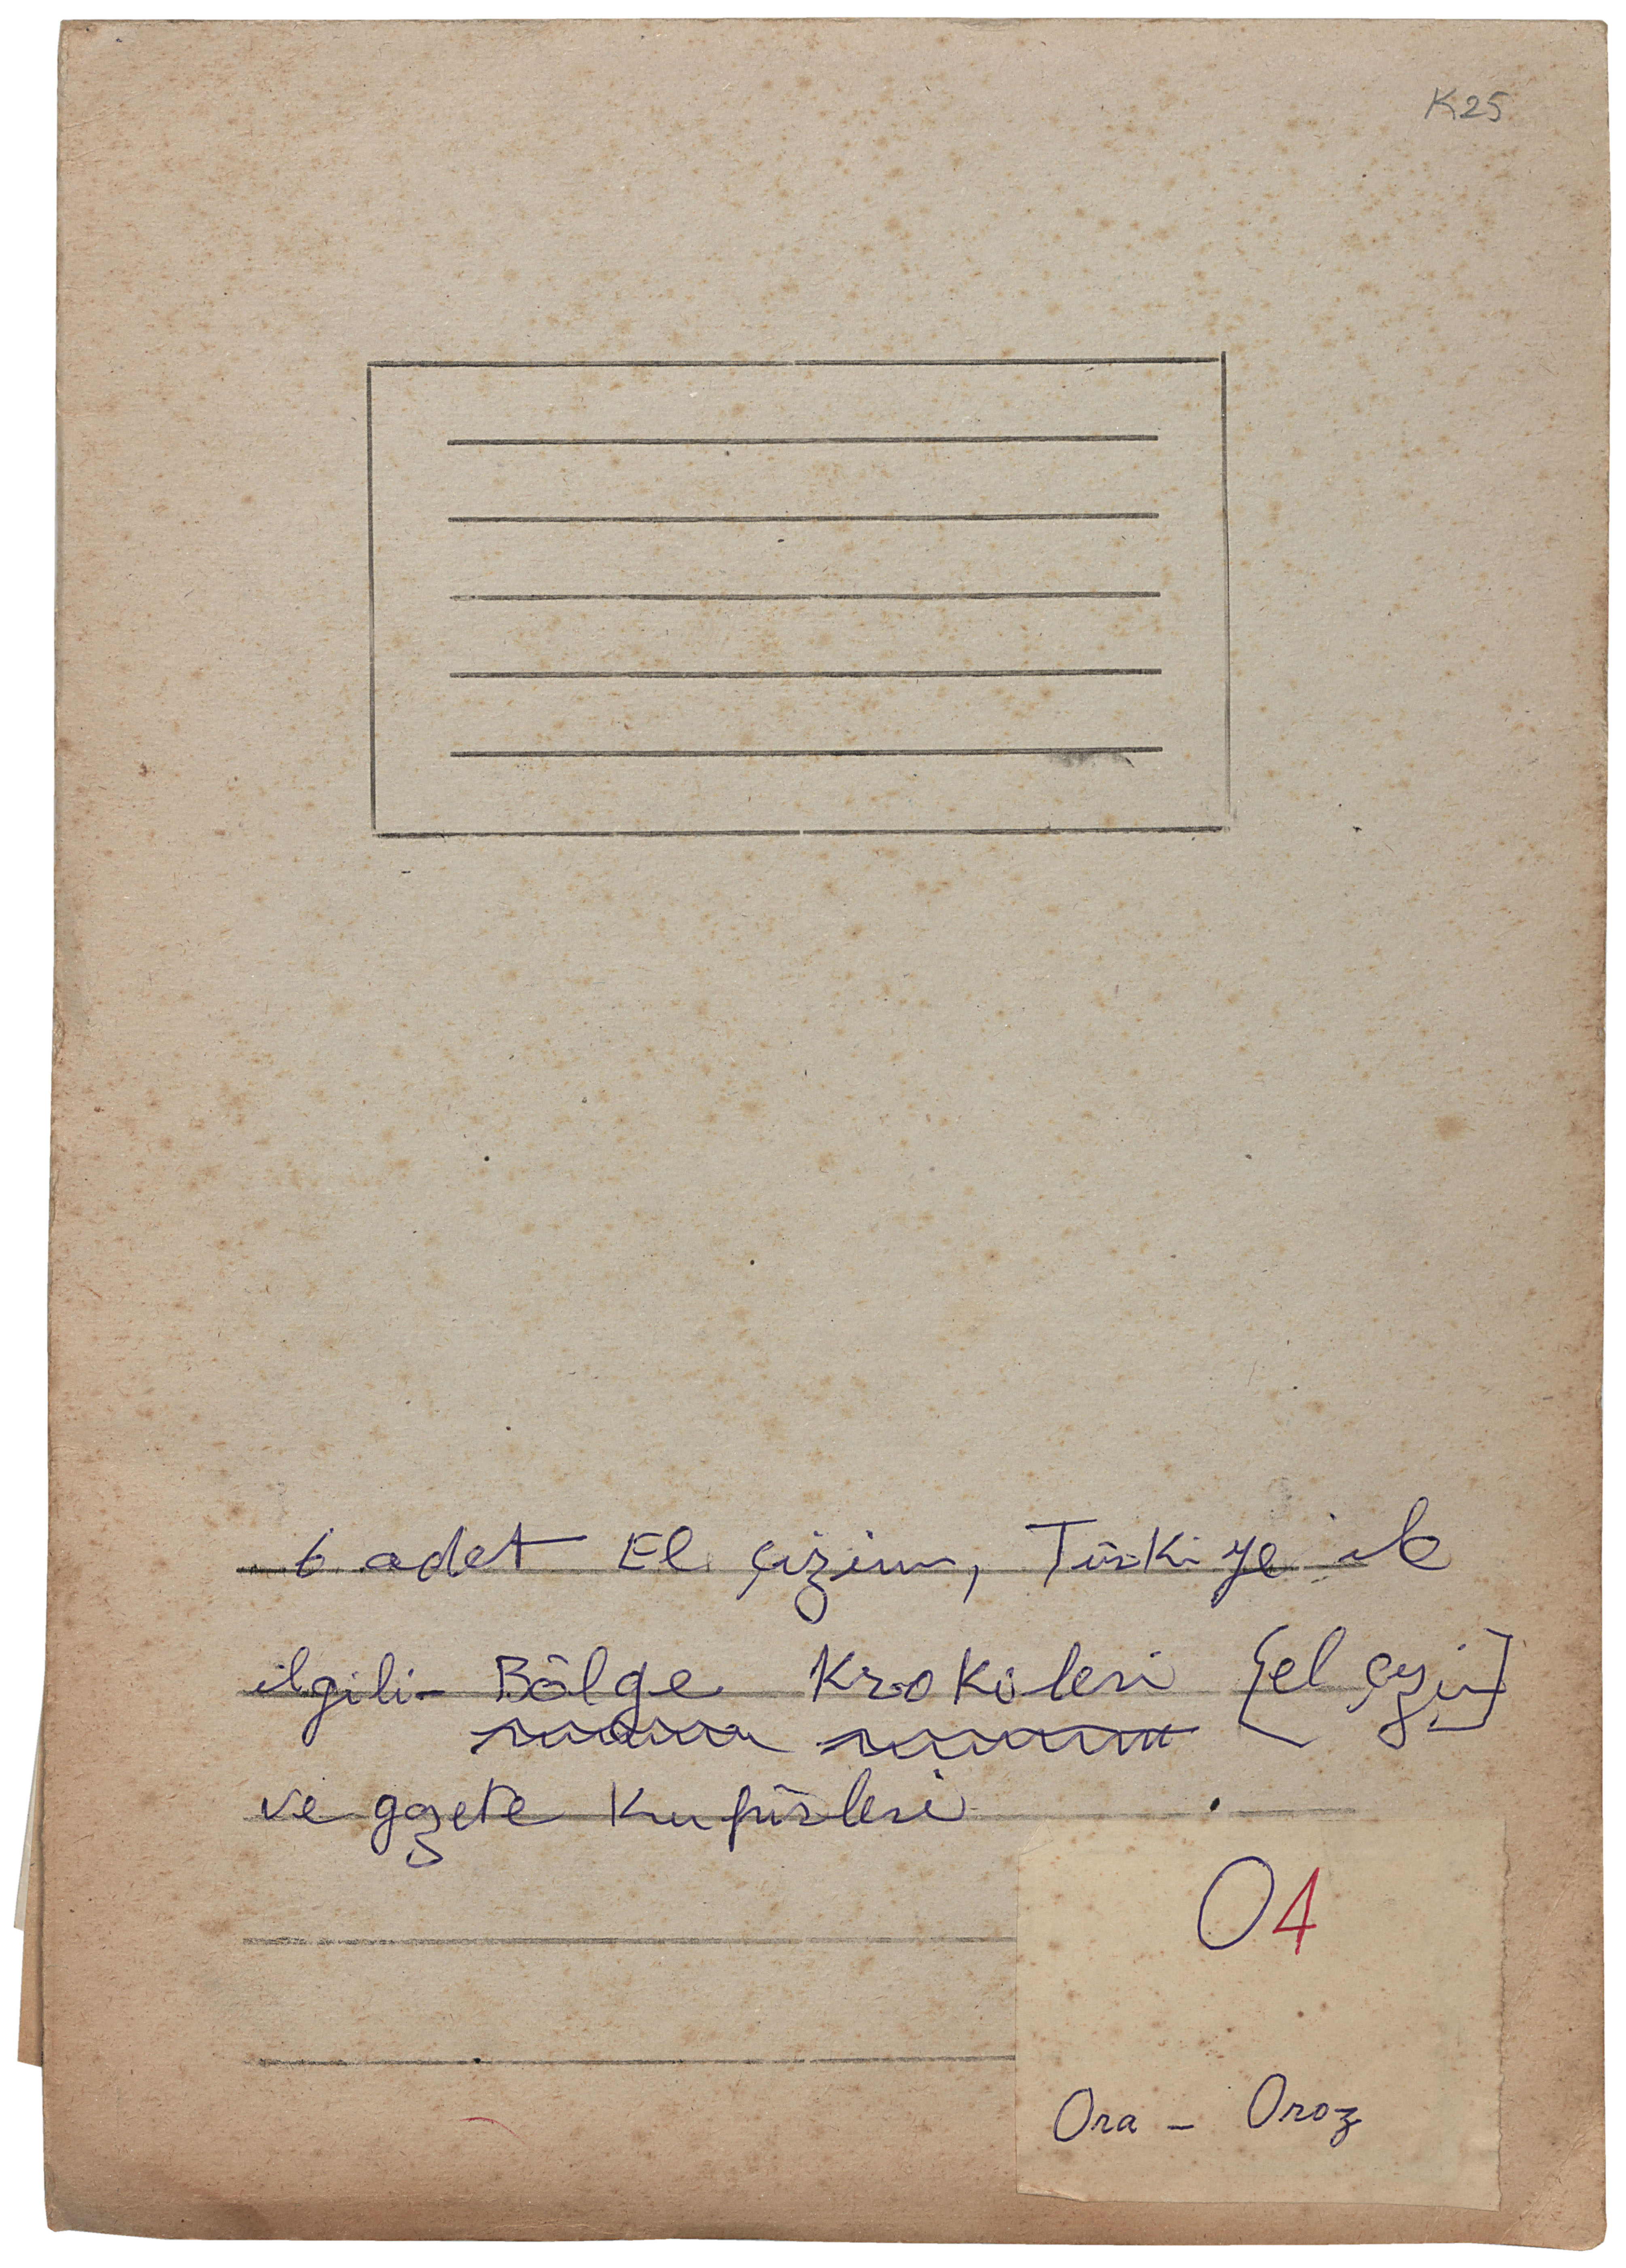 K25
6 adet El çizim, Türkiye ile
ilgili- Bölge Krokileri [el çizim]
ve gazete Kupürleri
04
Ora - Oroz